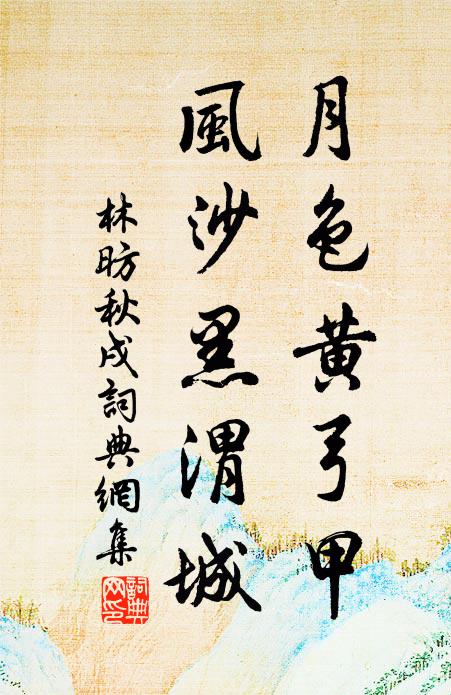 月色黃弓甲
風沙黑渭城
林昉秋戍詞典網集
詞典
网印